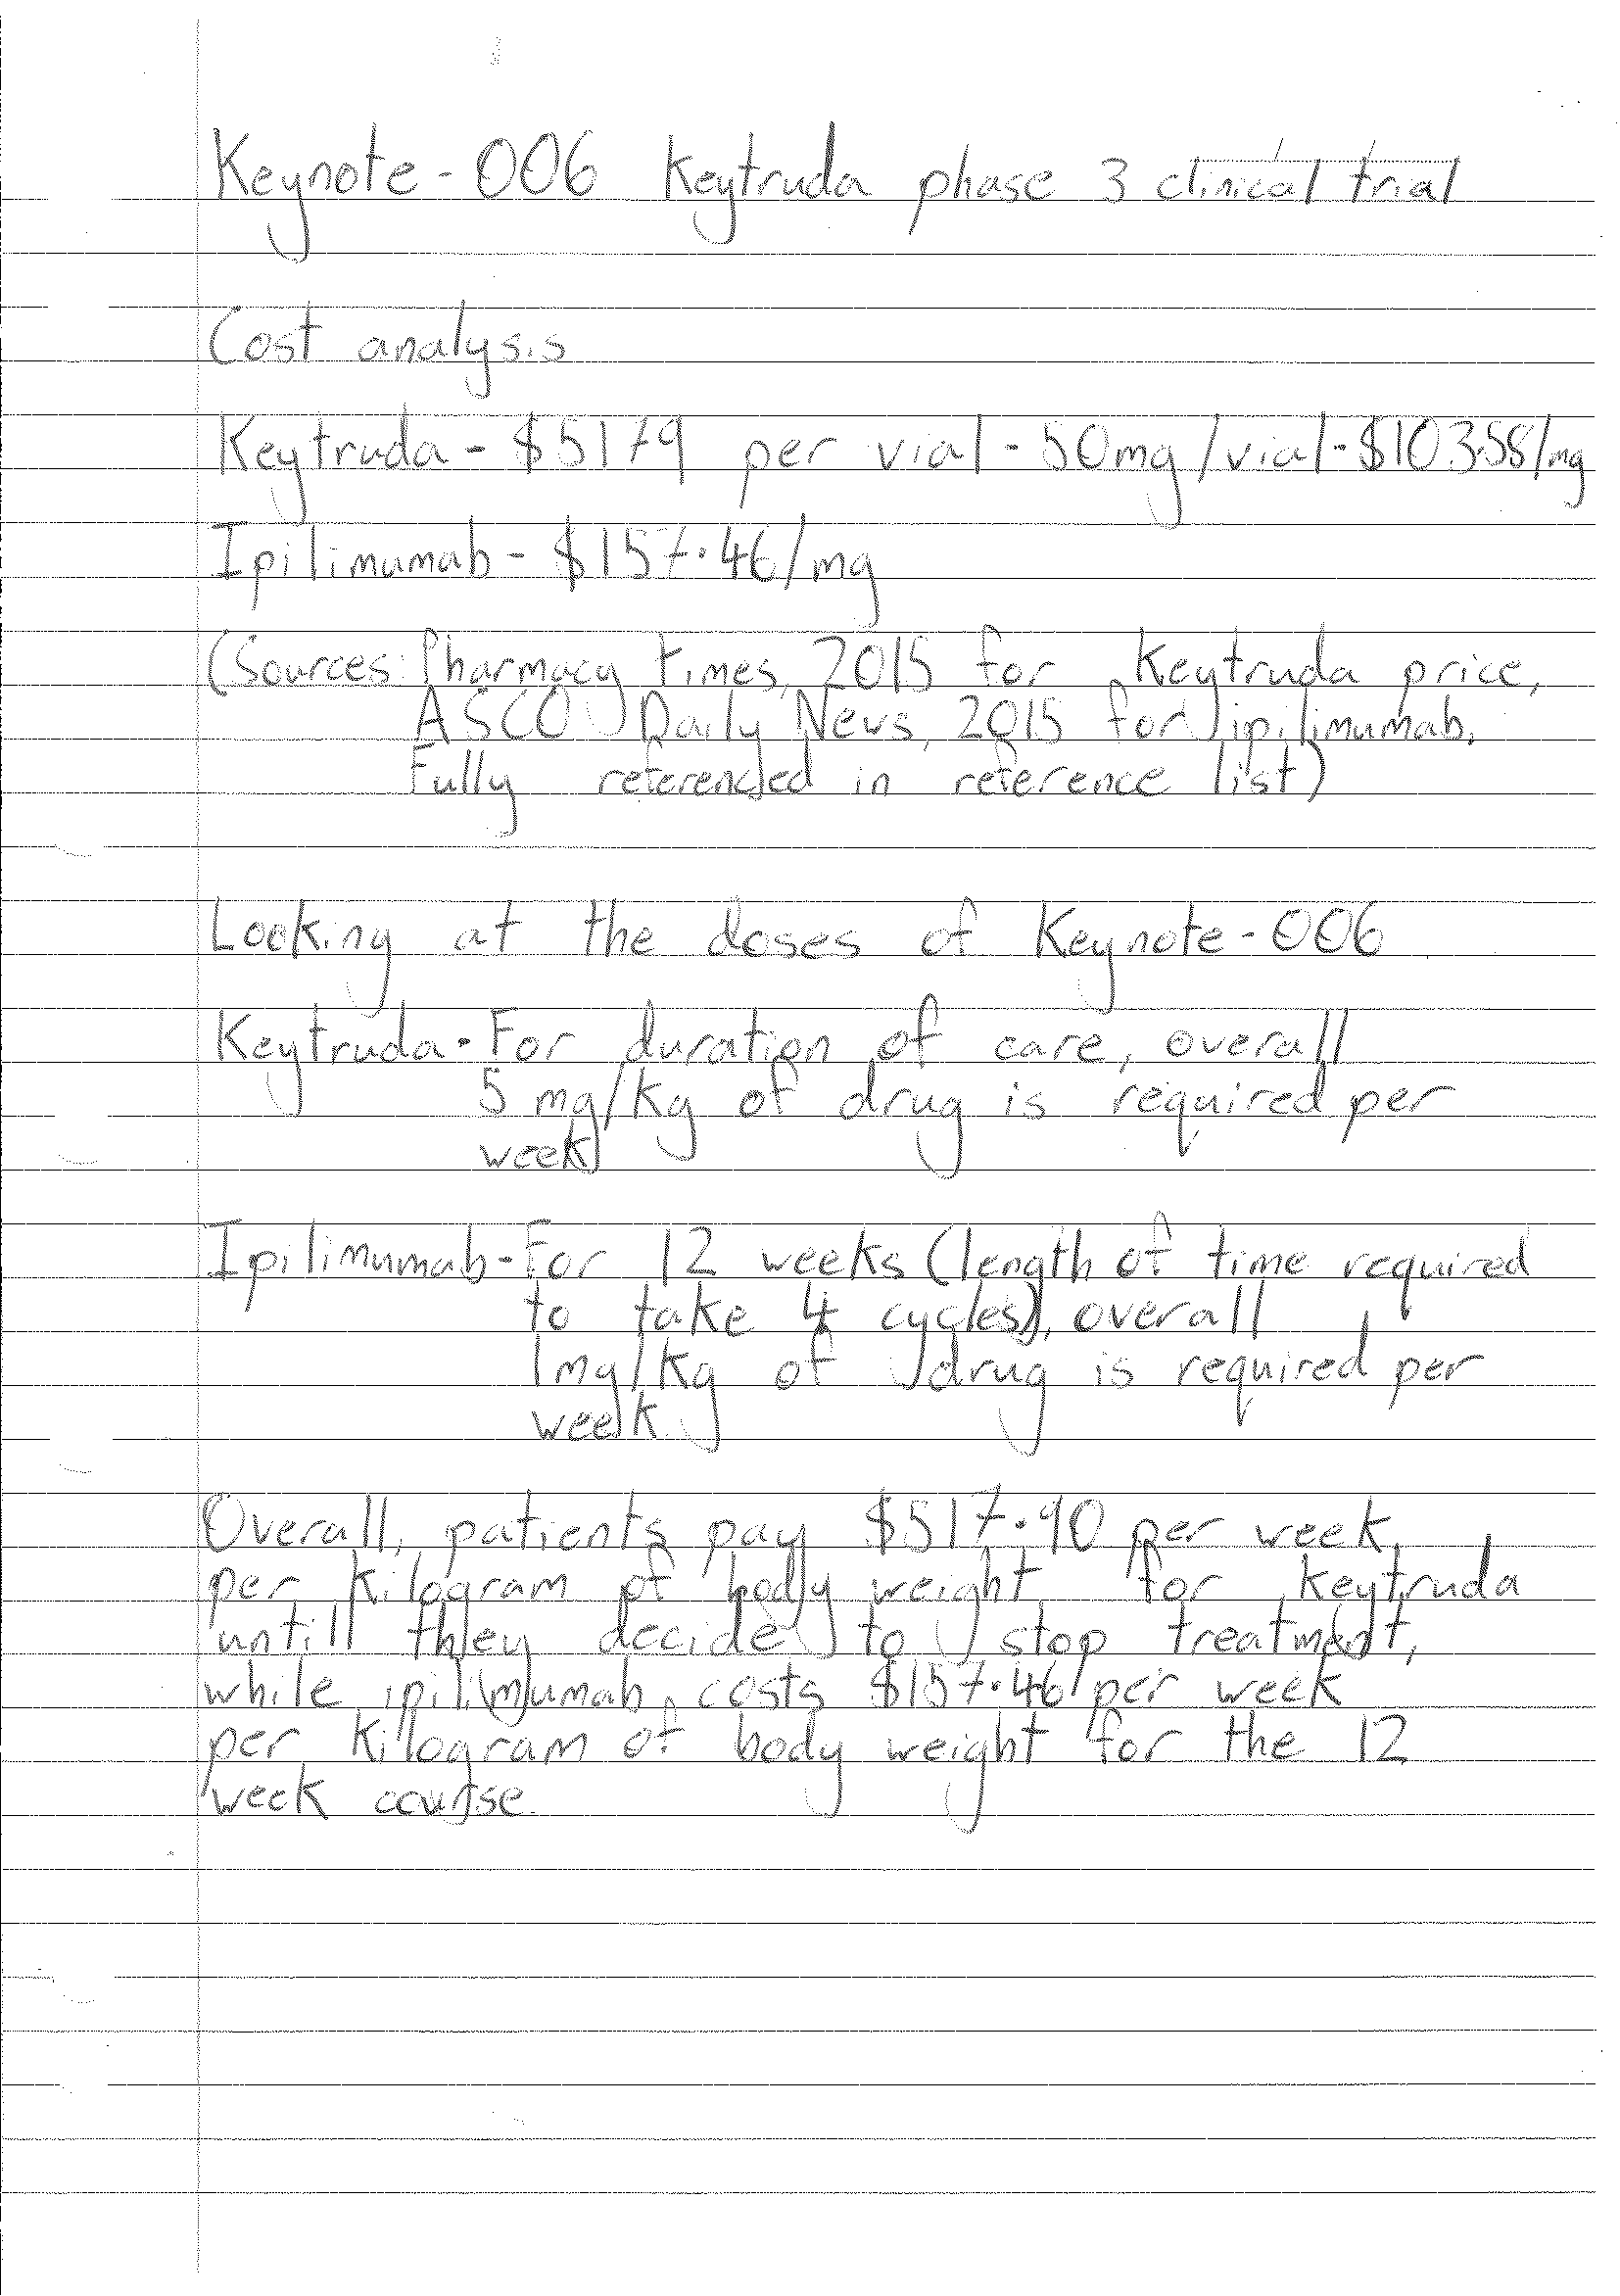 Keynote-006 Keytruda phase 3 clinical trial
Cost analysis
Keytruda - $5179 per vial - 50mg/vial - $103.58/mg
Ipilimumab - $157.46/mg
(Sources: Pharmacy times, 2015 for Keytruda price,
ASCO Daily News, 2015 for ipilimumab.
Fully referenced in reference list)
Looking at the doses of Keynote-006
Keytruda - For duration of care, overall
5 mg/kg of drug is required per
week
Ipilimumab - For 12 weeks (length of time required
to take 4 cycles), overall
1mg/kg of drug is required per
week.
Overall, patients pay $517.90 per week
per kilogram of body weight for keytruda
untill they decide to stop treatment,
while ipilimumab costs $157.46 per week
per kilogram of body weight for the 12
week course.